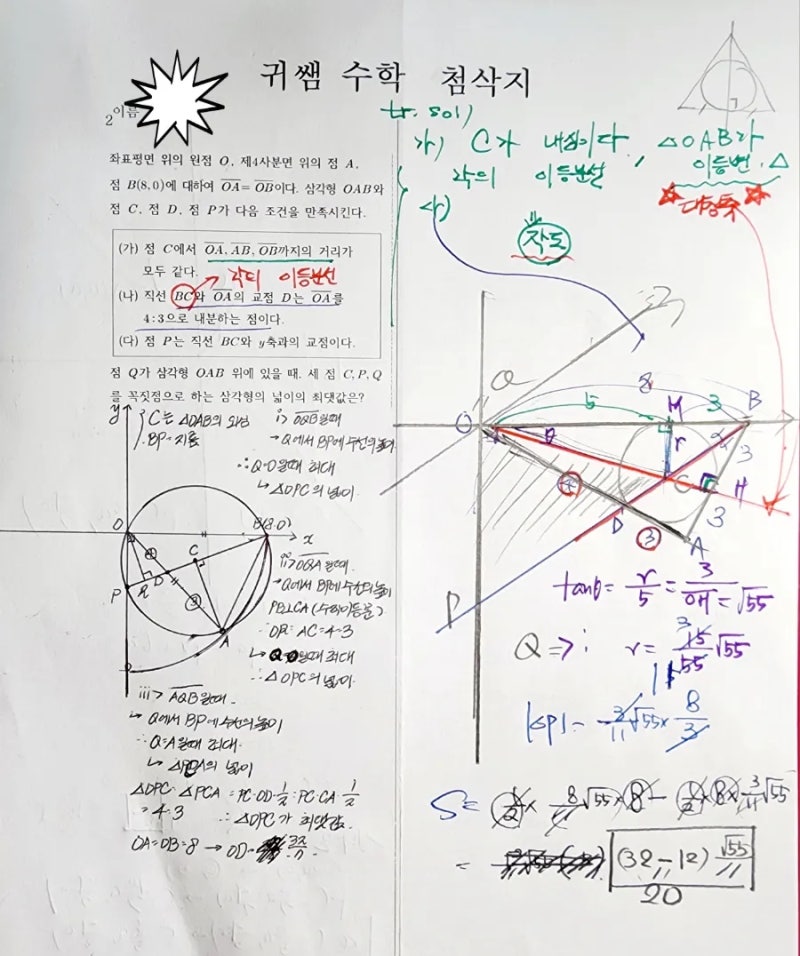 귀쌤 수학 첨삭지
2이름
좌표평면 위의 원점 O, 제4사분면 위의 점 A,
점 B(8,0)에 대하여 OA=OB이다. 삼각형 OAB와
점 C, 점 D, 점 P가 다음 조건을 만족시킨다.
(가) 점 C에서 OA, AB, OB까지의 거리가
모두 같다.
각의 이등분선
(나) 직선 BC와 OA의 교점 D는 OA를
4:3으로 내분하는 점이다.
(다) 점 P는 직선 BC와 y축과의 교점이다.
점 Q가 삼각형 OAB 위에 있을 때, 세 점 C, P, Q
를 꼭짓점으로 하는 삼각형의 넓이의 최댓값은?
C는 △OAB의
BP=지름
i> OQB 일때
→ Q에서 BP에 수선의 높이
∴ Q=O일때 최대
↳ △OPC의 넓이
y
O
B(8.0)
x
C
P
R
D
④
③
A
ii> OQA 일때
→ Q에서 BP에 수선의 높이
∴ OR : AC = 4:3
↳ Q=O일때 최대
∴ △OPC의 넓이
iii> AQB 일때
↳ Q에서 BP에 수선의 높이
∴ Q=A일때 최대
↳ △PCA의 넓이
△OPC : △PCA = PC·OD·1/2 : PC·CA·1/2
= 4:3 ∴ △OPC가 최댓값
OA=OB=8 → OD=
tr. sol)
가) C가 내심이다, △OAB가
각의 이등분선 이등변.△
대칭축
나)
작도
Q
8
O
5
M
3
B
θ
r
3
④
C
H
D
③
3
A
P
tanθ = r/5 = 3/OH = √55
Q => ; r = 15/55 √55
|OP| = 3/11 √55 × 8/3
S = 1/2 × 8/11 √55 × 8 − 1/2 × 8 × 3/11 √55
= (32−12) √55/11
20